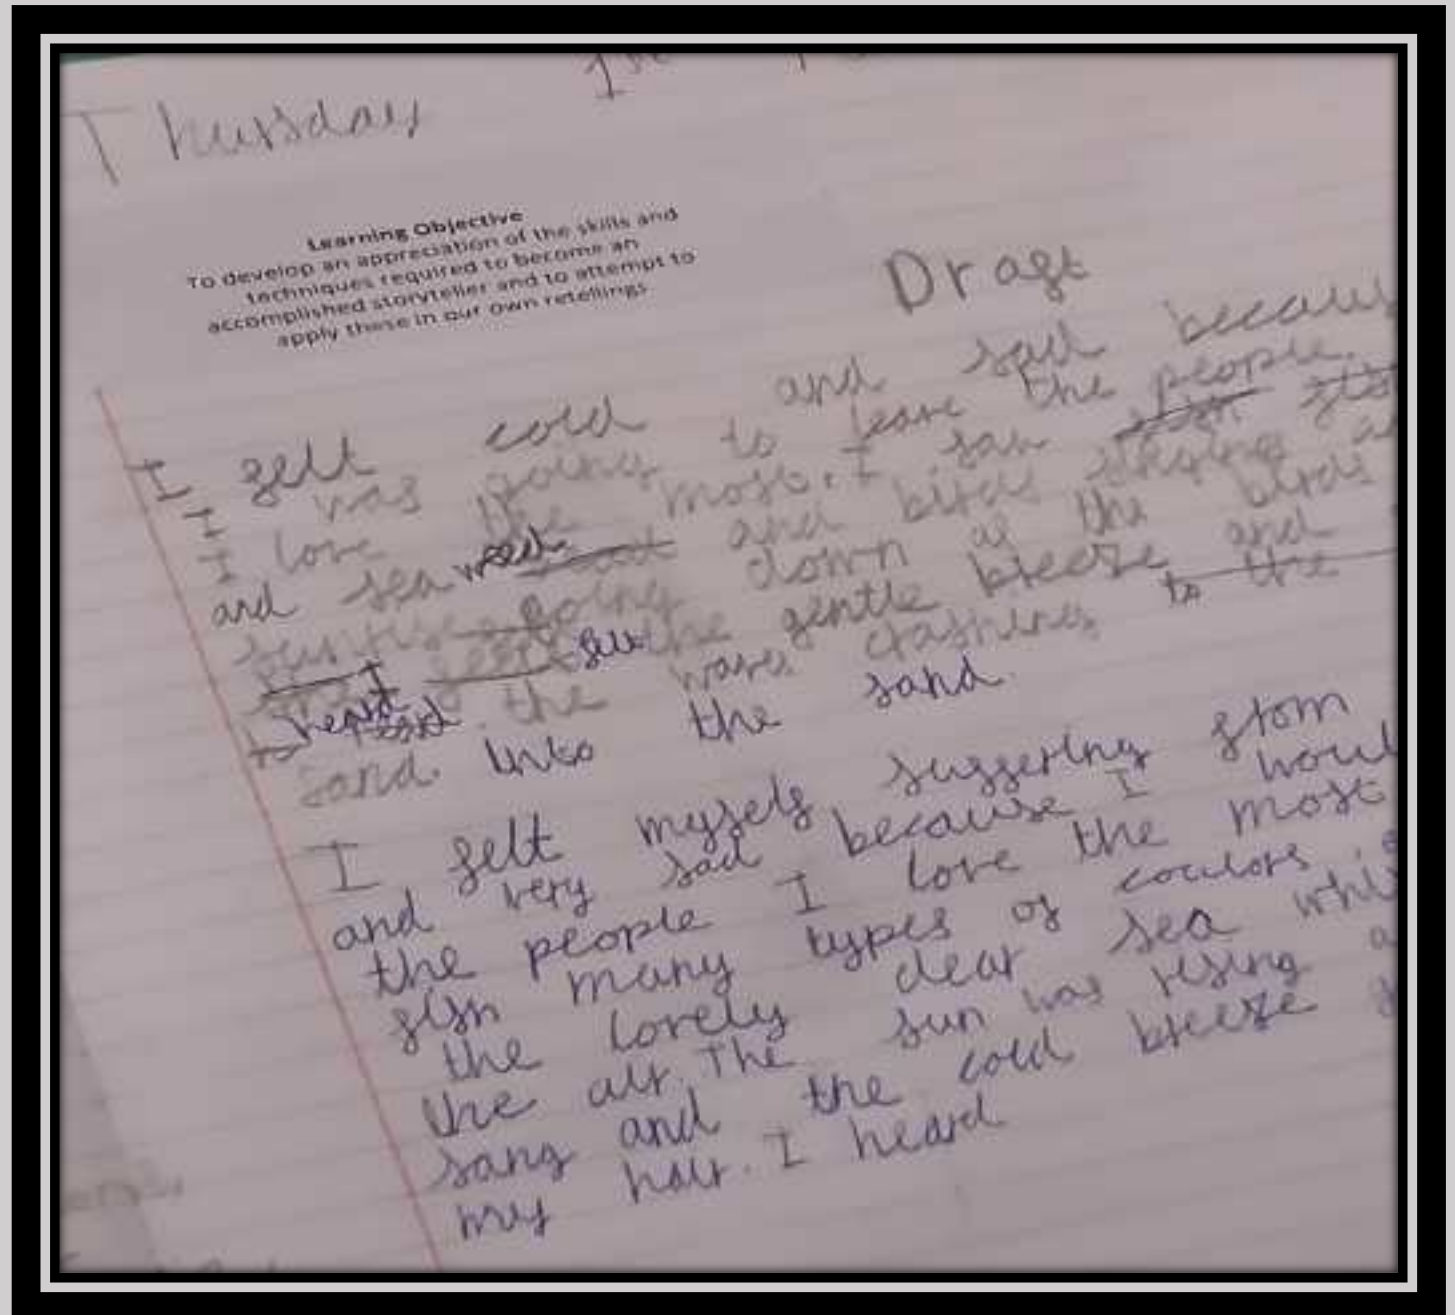 Thursday 1st
Learning Objective
To develop an appreciation of the skills and
techniques required to become an
accomplished storyteller and to attempt to
apply these in our own retellings
Draft
I felt cold and sad becaus
I was going to leave the people.
I love the most. I saw fish
and sea weed and birds singing
sunrise going down as the birds
I felt the gentle breeze and
heard the waves clashing to the
sand. into the sand.
I felt myself suffering from
and very sad because I woul
the people I love the most
fish many types of coulors.
the lovely clear sea whi
the air. The sun was rising a
sang and the cold breeze
my hair. I heard